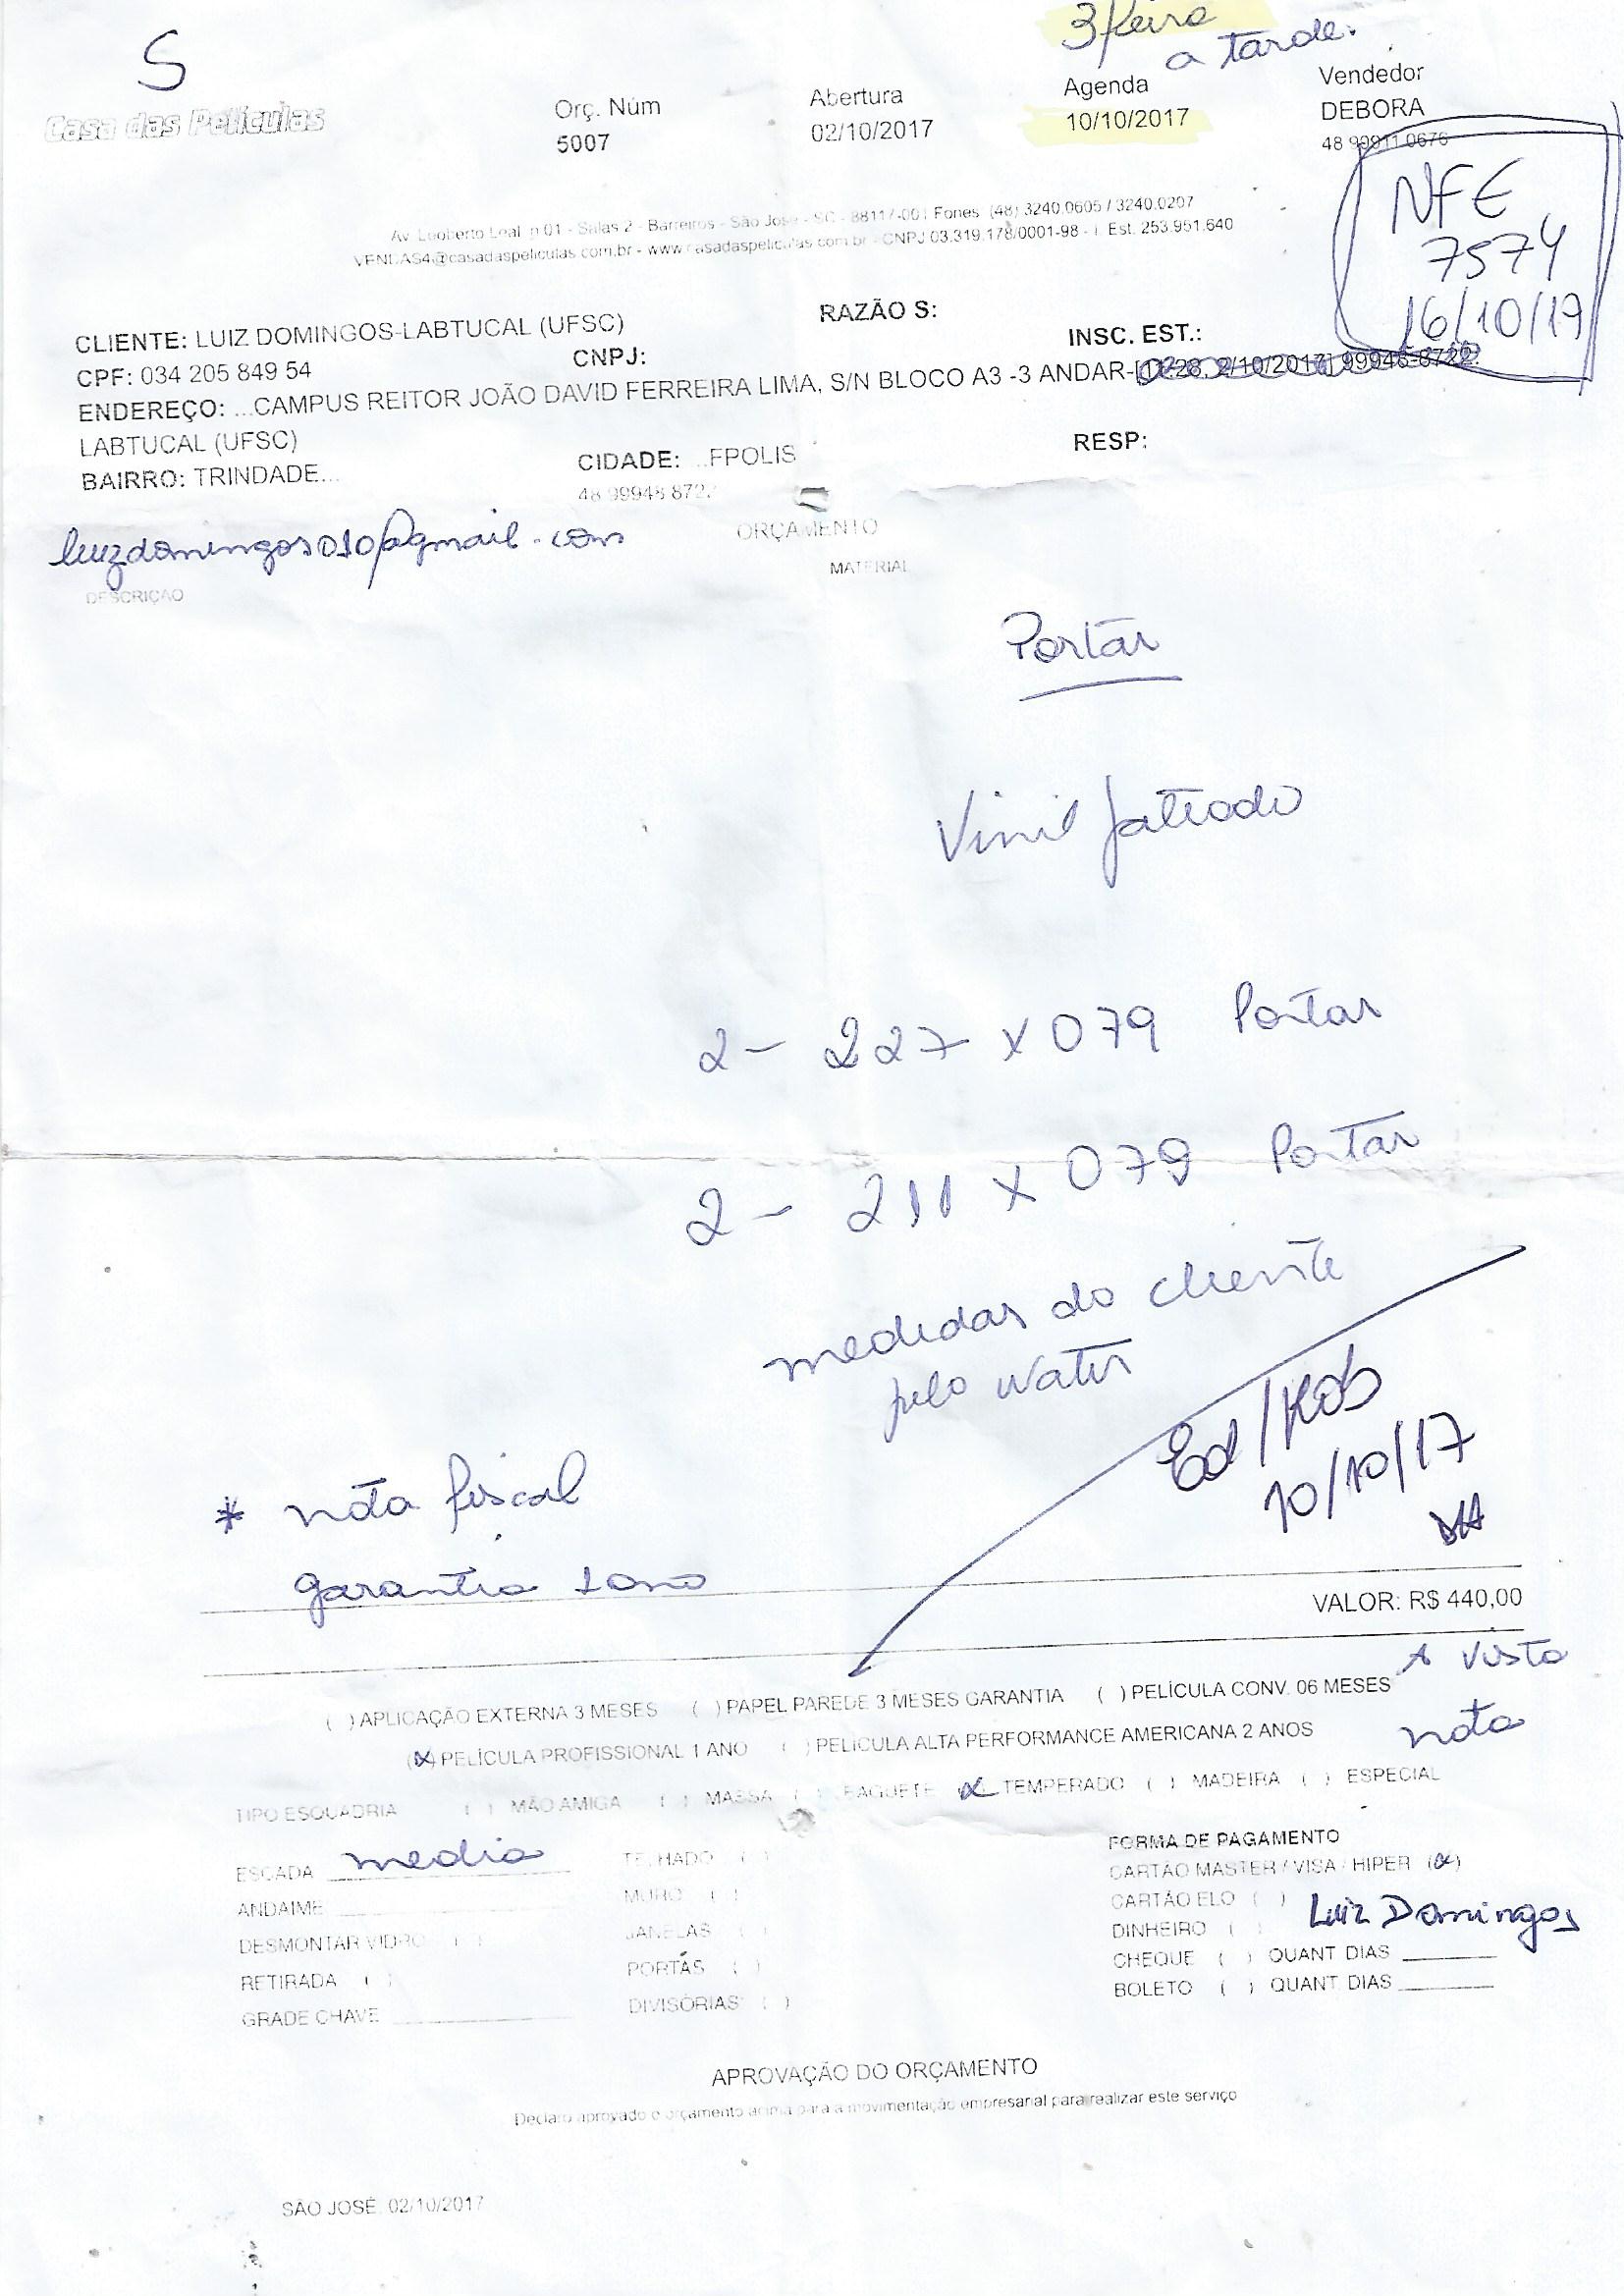 3 feira
a tarde.
S
Casa das Películas
Orç. Núm
5007
Abertura
02/10/2017
Agenda
10/10/2017
Vendedor
DEBORA
48 99911 0676
NFE
7574
16/10/17
Av. Leoberto Leal n 01 - Salas 2 - Barreiros - São José - SC - 88117-001 Fones (48) 3240.0605 / 3240.0207
VENDAS4@casadaspeliculas.com.br - www.casadaspeliculas.com.br - CNPJ 03.319.178/0001-98 - I. Est. 253.951.640
CLIENTE: LUIZ DOMINGOS-LABTUCAL (UFSC)
RAZÃO S:
CPF: 034 205 849 54
CNPJ:
INSC. EST.:
ENDEREÇO: ...CAMPUS REITOR JOÃO DAVID FERREIRA LIMA, S/N BLOCO A3 -3 ANDAR-
LABTUCAL (UFSC)
BAIRRO: TRINDADE...
CIDADE: ...FPOLIS
RESP:
48 99948 872
luizdomingos010@gmail.com
ORÇAMENTO
DESCRIÇÃO
MATERIAL
Portas
Vinil jateado
2- 227 x 079 Portas
2- 211 x 079 Portas
medidas do cliente
pelo wats
Ed/Rob
10/10/17
* nota fiscal
garantia 1 ano
VALOR: R$ 440,00
A vista
nota
( ) APLICAÇÃO EXTERNA 3 MESES ( ) PAPEL PAREDE 3 MESES GARANTIA ( ) PELÍCULA CONV. 06 MESES
(x) PELÍCULA PROFISSIONAL 1 ANO ( ) PELÍCULA ALTA PERFORMANCE AMERICANA 2 ANOS
TIPO ESQUADRIA ( ) MÃO AMIGA ( ) MASSA ( ) BAGUETE (x) TEMPERADO ( ) MADEIRA ( ) ESPECIAL
ESCADA media
ANDAIME
DESMONTAR VIDRO ( )
RETIRADA ( )
GRADE CHAVE
TELHADO ( )
MURO ( )
JANELAS ( )
PORTAS ( )
DIVISÓRIAS ( )
FORMA DE PAGAMENTO
CARTÃO MASTER / VISA / HIPER (x)
CARTÃO ELO ( )
DINHEIRO ( )
Luiz Domingos
CHEQUE ( ) QUANT DIAS
BOLETO ( ) QUANT DIAS
APROVAÇÃO DO ORÇAMENTO
Declaro aprovado o orçamento acima para a movimentação empresarial para realizar este serviço
SÃO JOSÉ, 02/10/2017